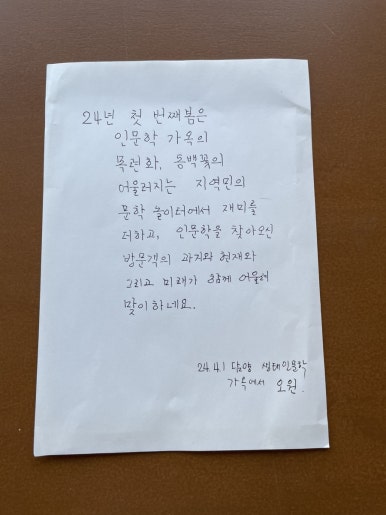 24년 첫 번째봄은
인문학 가옥의
목련화, 동백꽃의
어울러지는 지역민의
문학 놀이터에서 재미를
더하고, 인문학을 찾아오신
방문객의 과거와 현재와
그리고 미래가 함께 어울려
맞이하네요.
24.4.1 담양 생태인문학
가옥에서 오원.